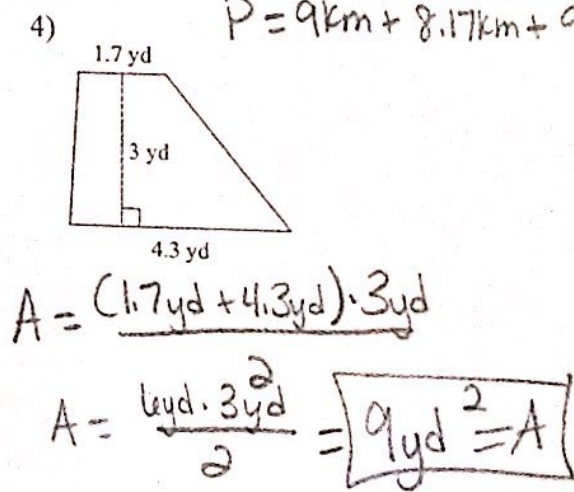 4)
P = 9km + 8.17km +
1.7 yd
3 yd
4.3 yd
A = (1.7yd + 4.3yd) · 3yd
A = 6yd · 3yd² / 2 = 9yd² = A